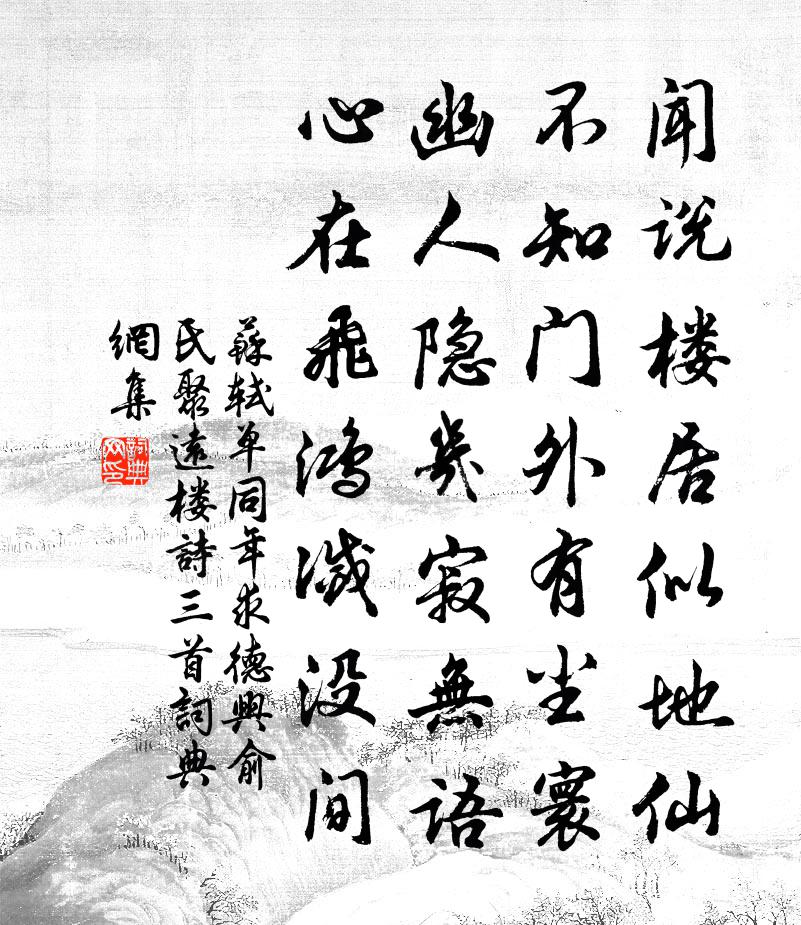 闻说楼居似地仙
不知门外有尘寰
幽人隐几寂無语
心在飛鸿滅没间
蘇轼单同年求德興俞
民聚遠楼詩三首詞典
網集
詞典
网印